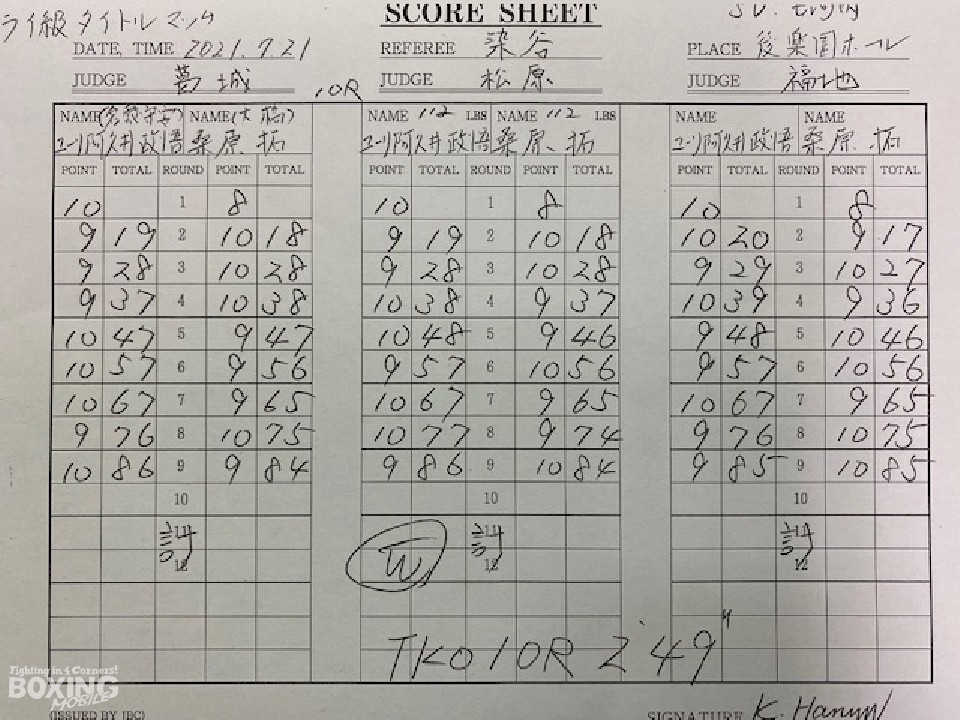 ライ級タイトルマッチ SCORE SHEET
DATE, TIME 2021.7.21 REFEREE 染谷 PLACE 後楽園ホール
JUDGE 葛城 10R JUDGE 松原 JUDGE 福地
NAME NAME NAME 112 LBS NAME 112 LBS NAME NAME
ユーリ阿久井政悟 桑原 拓 ユーリ阿久井政悟 桑原 拓 ユーリ阿久井政悟 桑原 拓
POINT TOTAL ROUND POINT TOTAL POINT TOTAL ROUND POINT TOTAL POINT TOTAL ROUND POINT TOTAL
10 1 8 10 1 8 10 1 8
9 19 2 10 18 9 19 2 10 18 10 20 2 9 17
9 28 3 10 28 9 28 3 10 28 9 29 3 10 27
9 37 4 10 38 10 38 4 9 37 10 39 4 9 36
10 47 5 9 47 10 48 5 9 46 9 48 5 10 46
10 57 6 9 56 9 57 6 10 56 9 57 6 10 56
10 67 7 9 65 10 67 7 9 65 10 67 7 9 65
9 76 8 10 75 10 77 8 9 74 9 76 8 10 75
10 86 9 9 84 9 86 9 10 84 9 85 9 10 85
10 10 10
計 W 計 計
12 12 12
TKO 10R 2'49"
Fighting in 4 Corners!
BOXING
MOBILE
(ISSUED BY JBC) SIGNATURE